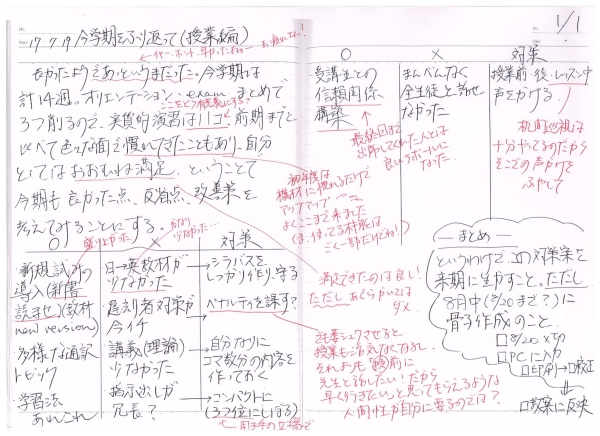 17.7.19 今学期をふり返って(授業編)
←イヤー、ホント、早かったねー お疲れさん!
長かったようであっというまだった。今学期は
計14週。オリエンテーション、exam、まとめで
ここをどう有意義にする?
3つ削るので、実質的演習は11コ。前期までと
比べて色々な面で慣れてきたこともあり、自分
としてはおおむね満足。ということで
今期も良かった点、反省点、改善策を
考えてみることにする。
盛り上がった
かなり少なかった…
○ × 対策
・新規試みの
導入(新書
読ませ)(教材
new version)
・多様な通訳
トピック
・学習法
あれこれ
日→英教材が
少なかった
遅刻者対策が
今イチ
講義(理論)
少なかった
指示出しが
冗長?
→シラバスを
しっかり作り、守る
→ペナルティを課す?
→自分なりに
コマ数分の内容を
作っておく
→コンパクトに
(3つ位にしぼる)
←聞き手の立場で
1/1
○ × 対策
受講生との
信頼関係
構築
まんべんなく
全生徒と話せ
なかった
授業前・後・レッスン中
声をかける。
最終回まで
出席してくれた人とは
良いラポールに
なった。
机間巡視は
十分やってるのだから
そこでの声かけを
ふやして
初年度は
機材に慣れるだけで
アップアップ
よくここまで来ました
(ま、使ってる機能は
ごく一部だけどね!)
満足できたのは良し!
ただし、あぐらかいては
ダメ。
授業もシゲキなくなるし。
それよりも「授業前に
先生と話したい!だから
早く行きたい」と思ってもらえるような
人間性が自分に要るのでは?
―まとめ―
というわけで、この対策案を
来期に生かすこと。ただし
8月中(8/20まで?)に
骨子作成のこと
□8/20〆切
□PCに入力
□印刷→□校正
□教案に反映